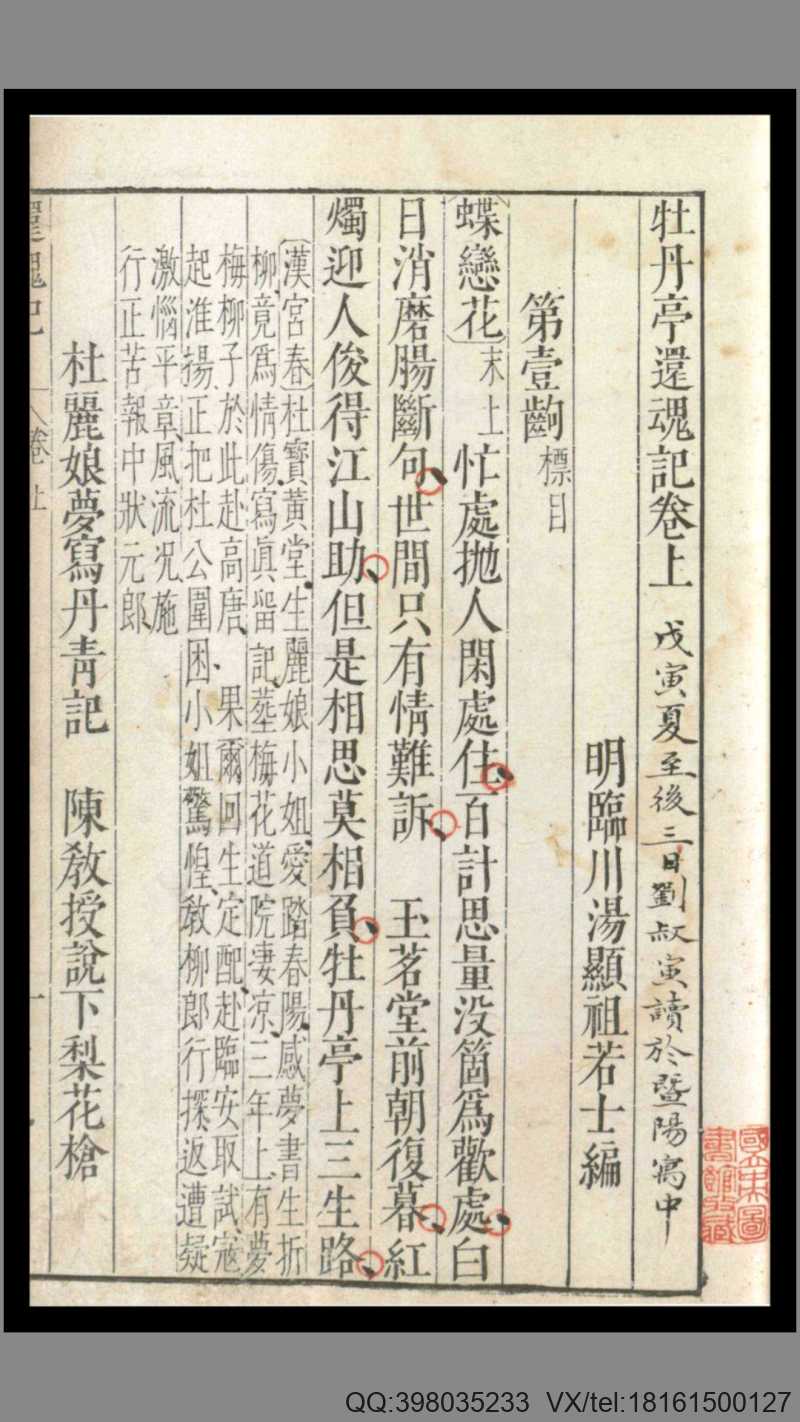 牡丹亭還魂記卷上 戊寅夏至後三日劉叔寅讀於暨陽寓中
明臨川湯顯祖若士編
第壹齣 標目
〔蝶戀花〕末上 忙處拋人閑處住百計思量没箇爲歡處白
日消磨腸斷句世間只有情難訴 玉茗堂前朝復暮紅
燭迎人俊得江山助但是相思莫相負牡丹亭上三生路
〔漢宮春〕杜寶黃堂生麗娘小姐愛踏春陽感夢書生折
柳竟爲情傷寫眞留記葬梅花道院凄凉三年上有夢
梅柳子於此赴高唐 果爾回生定配赴臨安取試寇
起淮揚正把杜公圍困小姐驚惶教柳郎行探返遭疑
激惱平章風流况施
行正苦報中狀元郎
杜麗娘夢寫丹靑記 陳敎授說下梨花槍
還魂記 卷上
QQ:398035233 VX/tel:18161500127